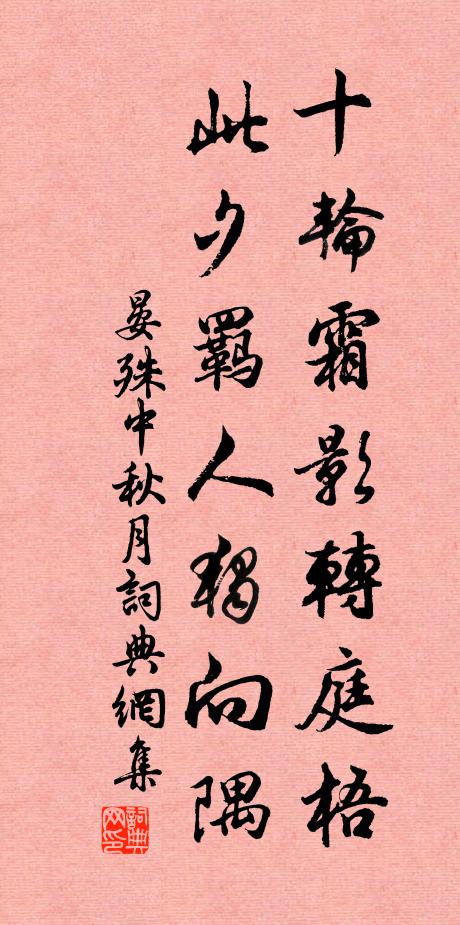 十輪霜影轉庭梧
此夕羈人獨向隅
晏殊中秋月詞典網集
詞典
网印